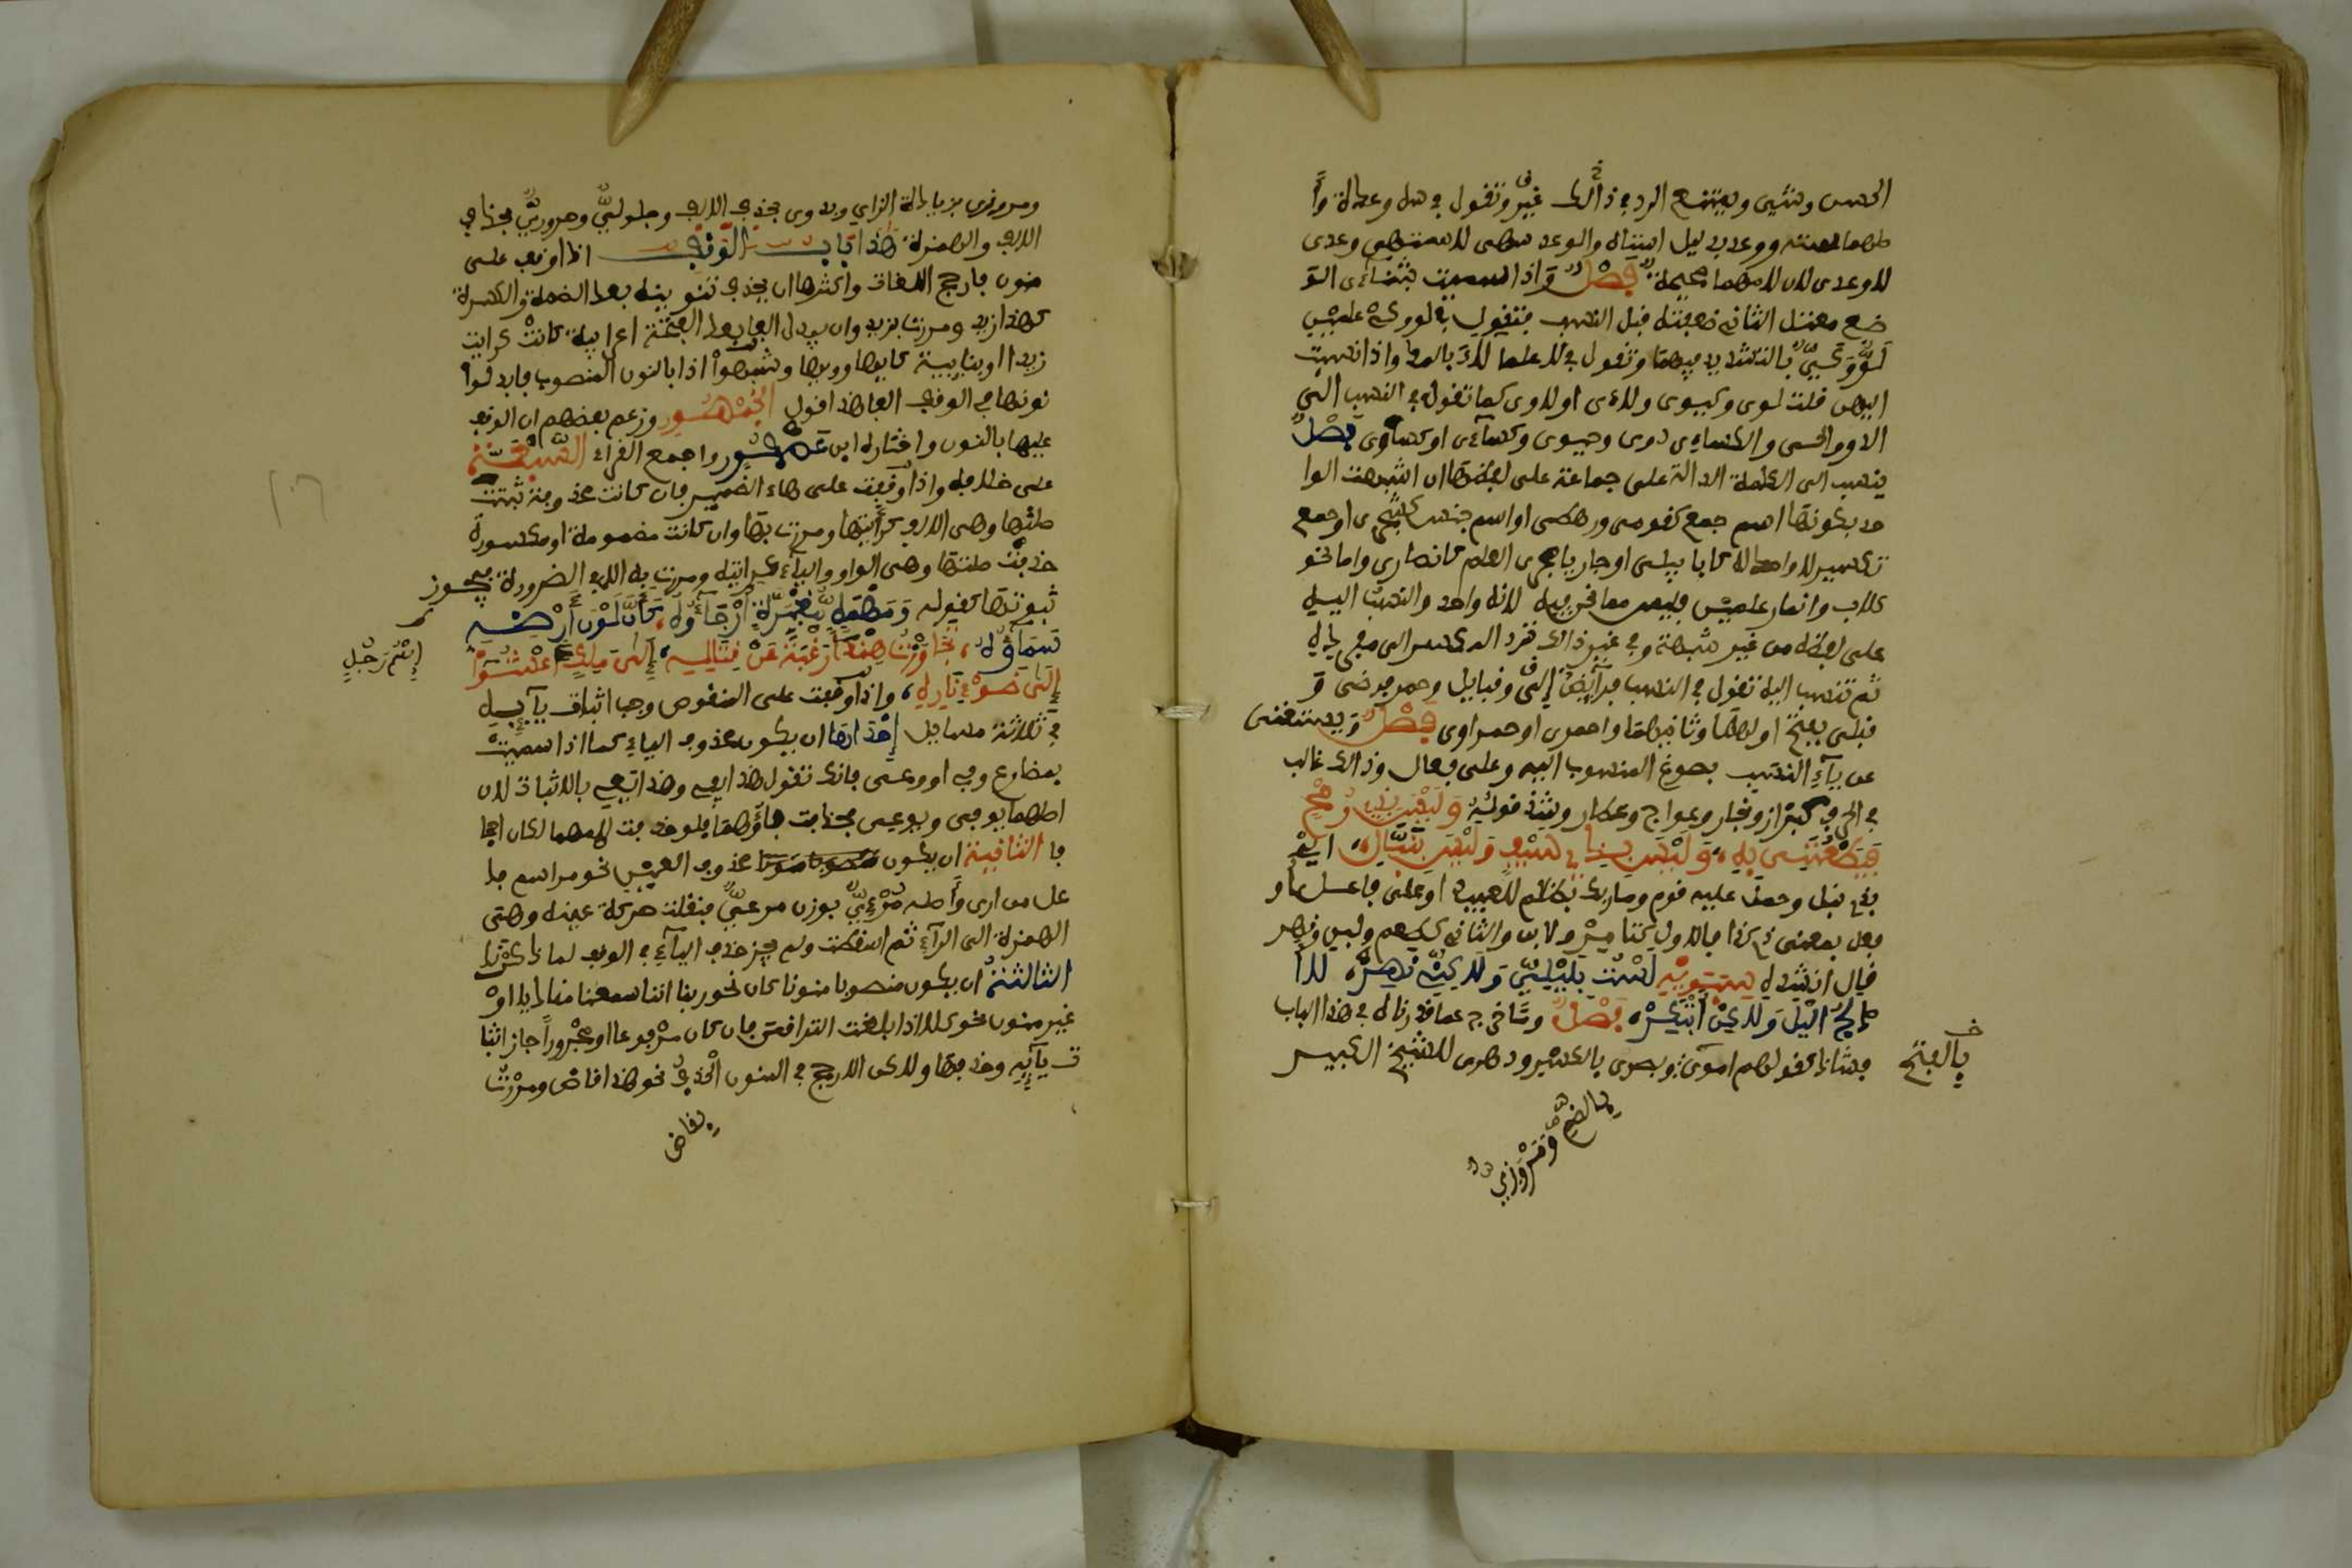 الحسن وشيى ويمتنع الرد في ذالك غير وتقول في سه وعدة وأ
صلهما سته ووعد بدليل استاه والوعد سهى لا ستهى وعدى
لا وعدى لان لامهما صحيحة فصل واذا سميت بثنائى الو
ضع معتل الثانى ضعفته قبل النسب فتقول في لو وكى علمين
لوّ وكىّ بالتشديد فيهما وتقول في لا علما لاء بالمد واذا نسبت
اليهن قلت لوى وكيوى ولاءى او لاوى كما تقول في النسب الى
الدو والحى والكساء دوى وحيوى وكساءى او كساوى فصل
ينسب الى الكلمة الدالة على جماعة على لفظها ان اشبهت الوا
حد بكونها اسم جمع كقومى ورهطى او اسم جنس كشجرى او جمع
تكسير لا واحد له كابابيلى او جاريا مجرى العلم كانصارى واما نحو
كلاب وانمار علمين فليس مما نحن فيه لانه واحد والنسب اليه
على لفظه من غير شبهة وفي غير ذالك ترد المكسر الى مفرده
ثم تنسب اليه تقول في النسب فرايض الى وقبايل وحمر فرضى و
قبلى بفتح اولهما وثانيهما واحمرى او حمراوى فصل ويستغنى
عن ياء النسب بصوغ المنسوب اليه وعلى فعال وذالك غالب
في الحرف كبزاز ونجار وعواج وعطار وشذ قوله وليس بذى رمح
فيطعننى به، وليس بذى سيف وليس بنبال، اى
بذى نبل وحمل عليه قوم وما ربك بظلام للعبيد او على فاعل او
فعل بمعنى ذى كذا فالاول كتامر ولابن والثانى كطعم ولبس ونهر
قال انشده سيبويه لست بليلىّ ولاكنى نهر، لا أ
دلج اليل ولاكن ابتكر، فصل وما خرج عما قررناه في هذا الباب
فشاذ كقولهم اموى وبصرى بالكسر ودهرى للشيخ الكبير
بالفتح
بالضم ومروزى
ومروزى بزيادة الزاي وبدوى بحذف الالف وجلولىّ وحرورىّ بحذف
الالف والهمزة هذا باب الوقف اذا وقف على
منون فارجح اللغات واكثرها ان يحذف تنوينه بعد الضمة والكسرة
كهذا زيد ومررت بزيد وان يبدل الفا بعد الفتحة اعرابية كانت كرايت
زيدا او بنايية كايها وويها وشبهوا اذا بالنون المنصوب فابدلوا
نونها في الوقف الفا هذا قول الجمهور وزعم بعضهم ان الوقف
عليها بالنون واختاره ابن عصفور واجمع القراء السبعة
على خلافه واذا وقفت على هاء الضمير فان كانت مفتوحة ثبتت
صلتها وهى الالف كرايتها ومررت بها وان كانت مضمومة او مكسورة
حذفت صلتها وهى الواو والياء كرايته ومررت به الا في الضرورة فيجوز
ثبوتها كقوله ومهمه مغبرة ارجاؤه، كأن لون ارضه
سماؤه، تجاوزت هندا رغبة عن قتاليه، الى ملك اعشوا
الى ضوء ناره، واذا وقفت على المنقوص وجب اثبات يآيه
في ثلاثة مسايل احداها ان يكون محذوف الفاء كما اذا سميت
بمضارع وفى او وعى فانك تقول هذا يفى وهذا يعى بالاثبات لان
اصلهما يوفى ويوعى فحذفت فآؤهما فلو حذفت لامهما لكان اجحا
فا الثانية ان يكون محذوف العين نحو مر اسم فا
عل من ارى واصله مرءىّ بوزن مرعىّ فنقلت حركة عينه وهى
الهمزة الى الرآء ثم اسقطت ولم يجز حذف اليآء في الوقف لما ذكرنا
الثالثة ان يكون منصوبا منونا كان نحو ربنا اننا سمعنا مناديا او
غير منون نحو كلا اذا بلغت التراقى فان كان مرفوعا او مجرورا جاز اثبا
ت يآيه وحذفها ولاكن الارجح في المنون الحذف نحو هذا قاض ومررت
بقاض